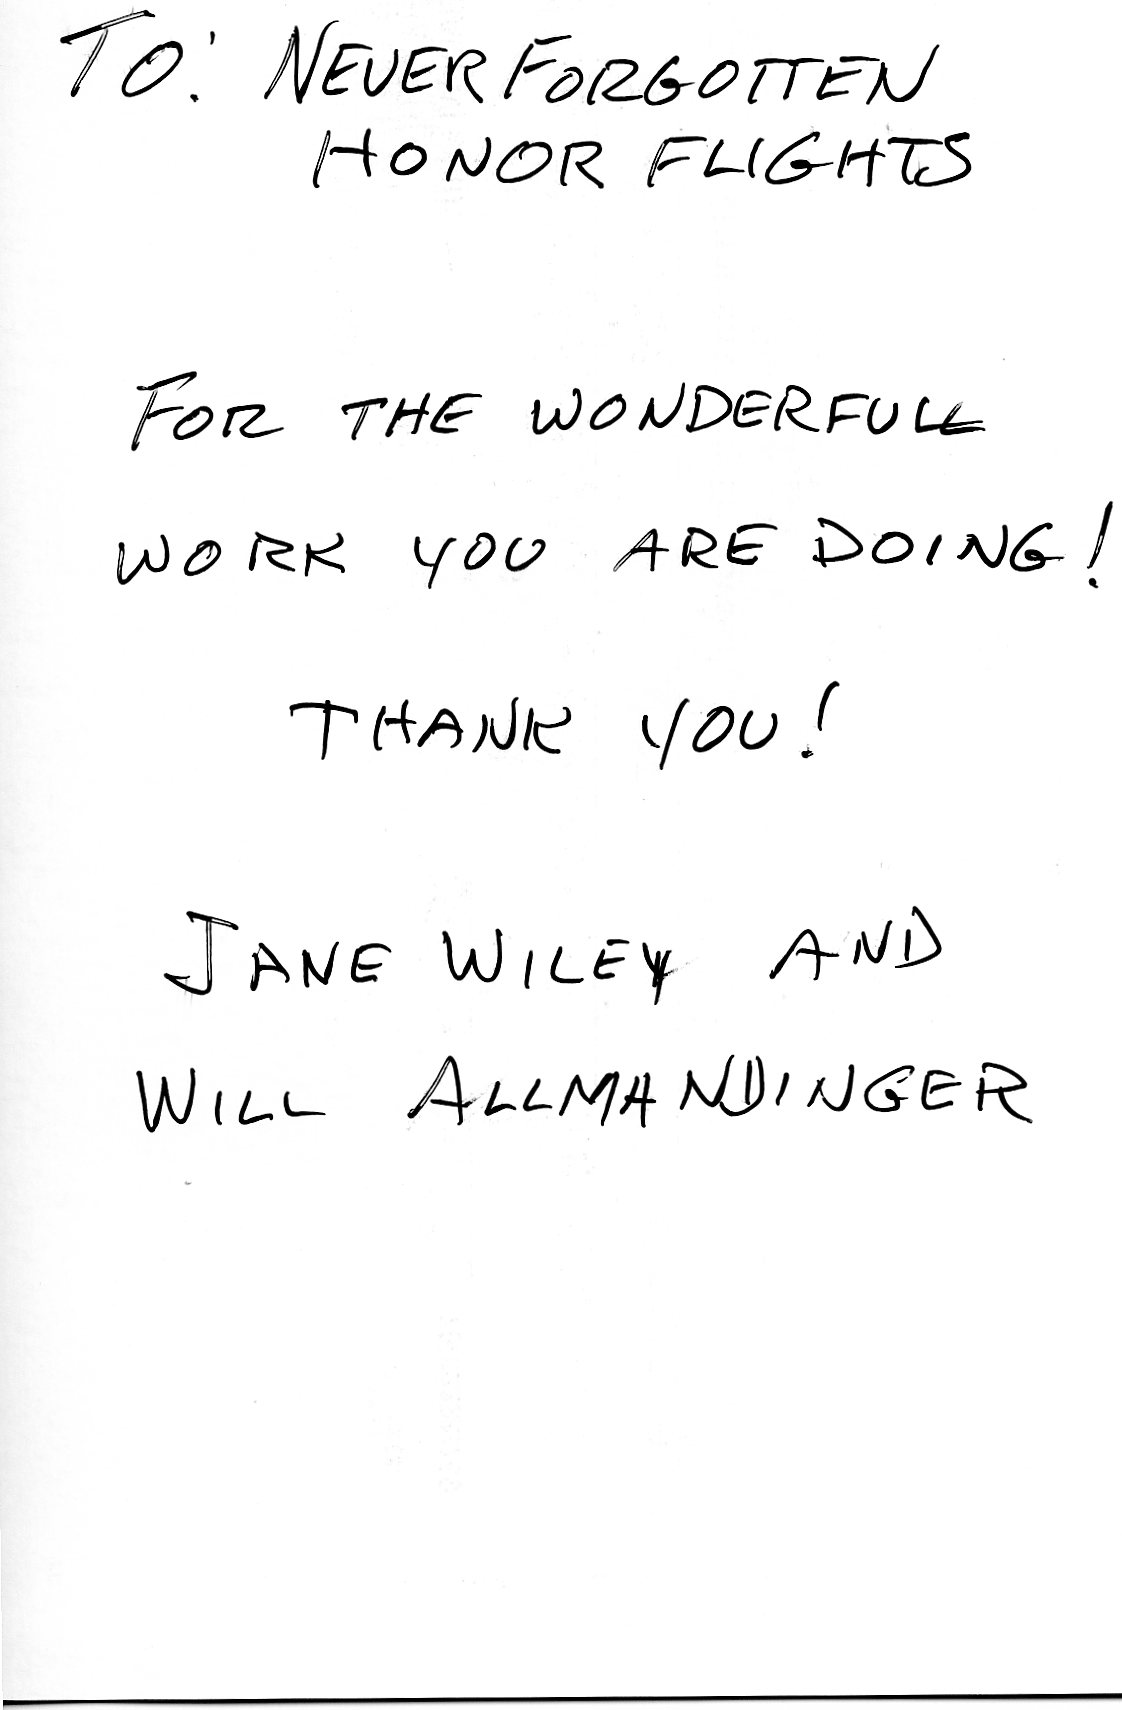 TO: NEVER FORGOTTEN
HONOR FLIGHTS
FOR THE WONDERFULL
WORK YOU ARE DOING!
THANK YOU!
JANE WILEY AND
WILL ALLMANDINGER